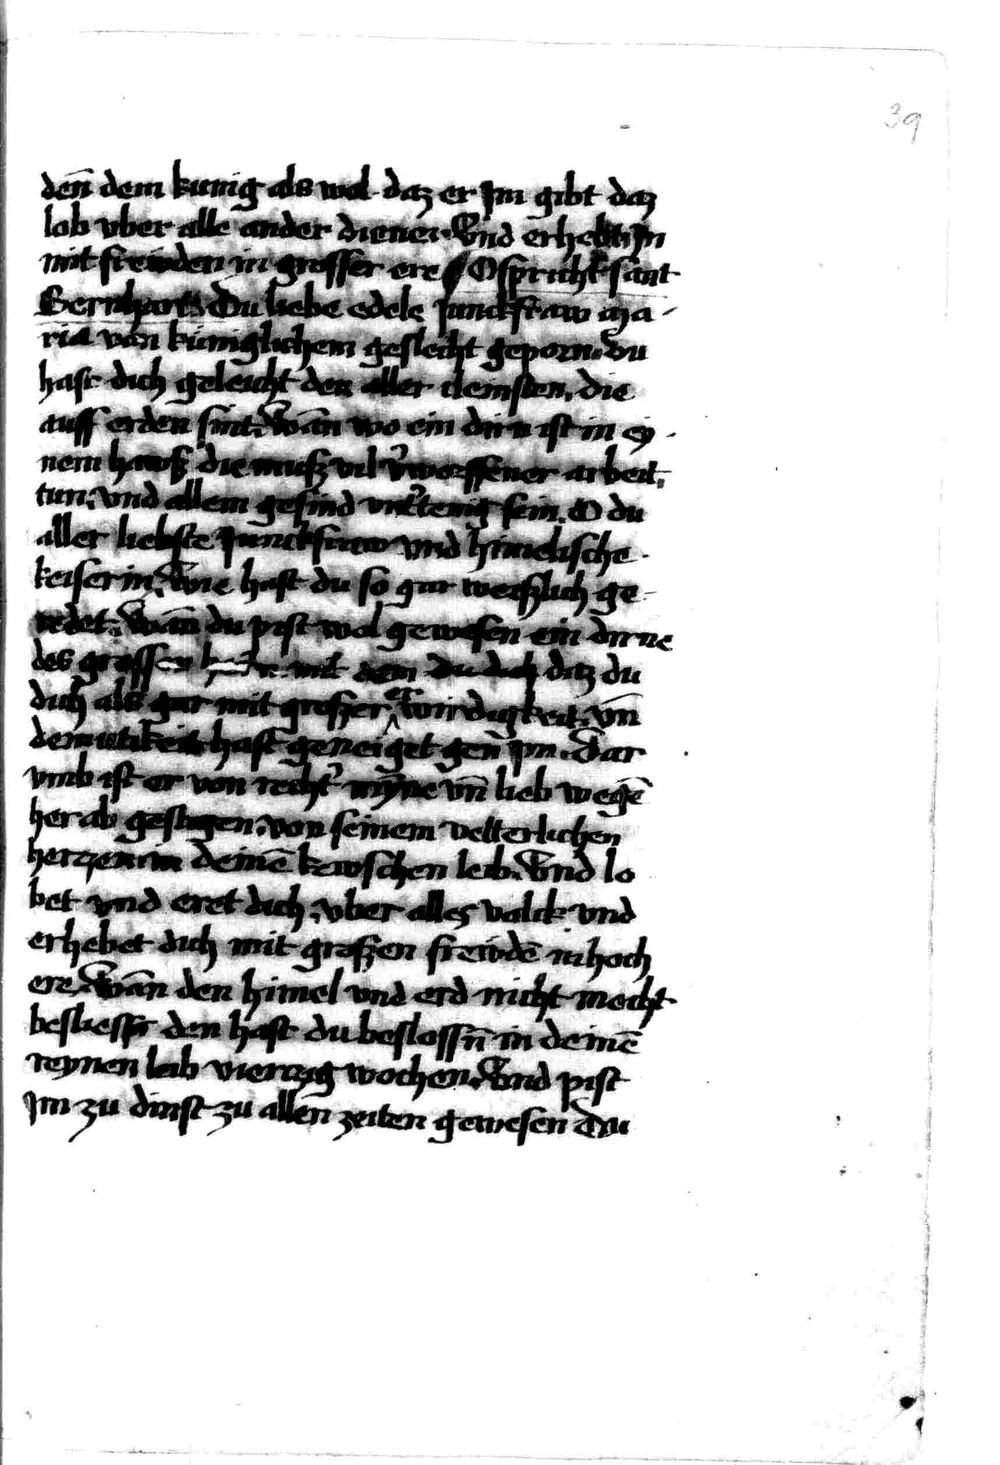 39
den̄ dem kunig als wol daz er Im gibt daz
lob vber alle ander diener Vnd erhebt In
mit frewden in grosser ere O spricht sant
Bernhart Du liebe edele Junckfraw ma
ria von küniglichem geslecht geporn Du
hast dich geleicht den aller clensten die
auff erden sint Wān wo ein dirn ist in ey
nem hawß die muß vil v̓worffener arbeit
tun vnd allem gesind vnt̓tenig sein O du
aller liebste Junckfraw vnd himelische
keiserin Wie hast du so gar weißlich ge
redet Wān du pist wol gewesen ein dirne
des grossen mit dem du daz du
dich als gar mit großer er wirdigkeit vn̄
demutikeit hast geneiget gen̄ Im Dar
vmb ist er von recht̓ mȳne vn̄ lieb wegē
herab gestigen von seinem vetterlichen
herczen in deinē kewschen leib Vnd lo
bet vnd eret dich vber alles volck vnd
erhebet dich mit großen frewdē in hoch
ere Wān den himel vnd erd nicht mocht
besliessn̄ den hast du beslossn̄ in deinē
reynen leib vierczig wochen Vnd pist
Im zu dinst zu allen zeiten gewesen Du